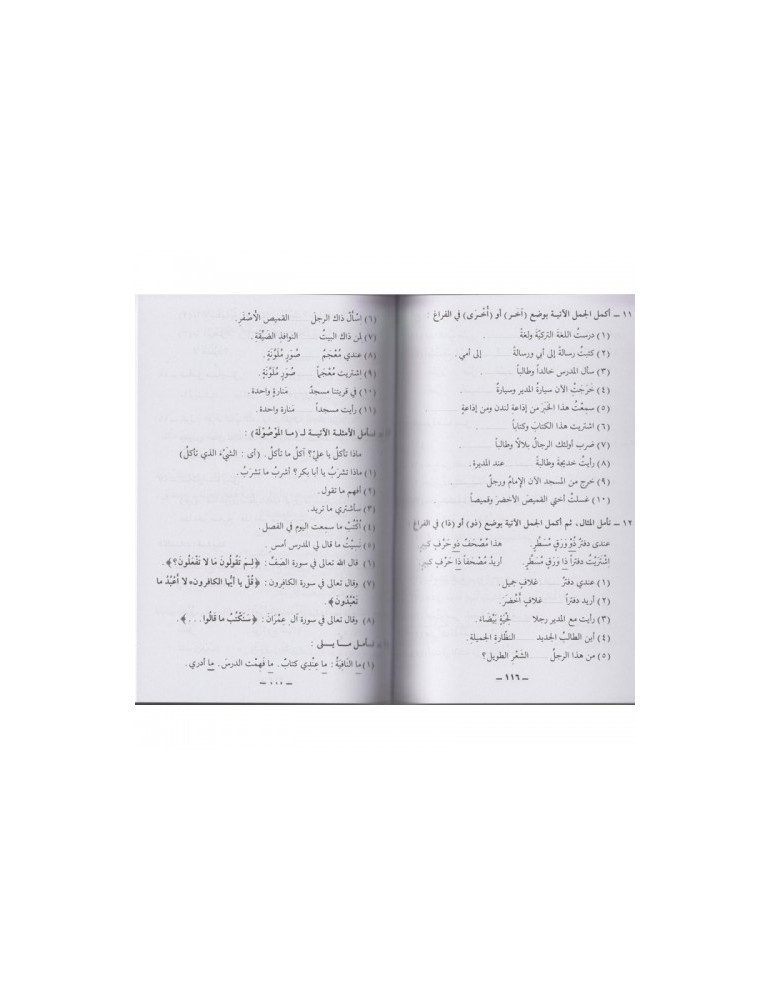 ١١ ــ أكمل الجمل الآتيـة بوضع (آخـر) أو (أُخْـرَى) في الفراغ :
(١) درستُ اللغةَ التركيّةَ ولغةً .
(٢) كتبتُ رسالةً إلى أبي ورسالةً إلى أمي .
(٣) سأل المدرس خالداً وطالباً .
(٤) خَرَجَتِ الآن سيارةُ المدير وسيارةٌ .
(٥) سمِعْتُ هذا الخَبَرَ من إذاعةِ لندن ومن إذاعةٍ .
(٦) اشتريت هذا الكتابَ وكتاباً .
(٧) ضرب أولئك الرجالُ بلالاً وطالباً .
(٨) رأيتُ خديجةَ وطالبةً عند المديرة .
(٩) خرج من المسجد الآن الإمامُ ورجلٌ .
(١٠) غسلتْ أختي القميصَ الأخضرَ وقميصاً .
١٢ ــ تأمل المثال، ثم أكمل الجمل الآتية بوضع (ذو) أو (ذا) في الفراغ
عندي دفترٌ ذُوْ وَرَقٍ مُسَطَّرٍ. هذا مُصْحَفٌ ذو حَرْفٍ كبيرٍ.
اِشْتَرَيْتُ دفتراً ذا وَرَقٍ مُسَطَّرٍ. أريدُ مُصْحَفاً ذا حَرْفٍ كبيرٍ.
(١) عندي دفترٌ غلافٍ جميل.
(٢) أريد دفتراً غلافٍ أَخْضَرَ.
(٣) رأيت مع المديرِ رجلا لِحْيَةٍ بَيْضَاءَ.
(٤) أين الطالبُ الجديد النظّارةِ الجميلةِ.
(٥) من هذا الرجلُ الشَّعْرِ الطويلِ؟
ــ ١١٦ ــ
(٦) اِسْأَلْ ذاك الرجلَ القميصِ الأَصْفَرِ.
(٧) لِمَن ذاك البيتُ النوافذِ الضَيِّقَةِ.
(٨) عندي مُعْجَمٌ صُوَرٍ مُلَوَّنَةٍ.
(٩) اِشتريت مُعْجَماً صُوَرٍ مُلَوَّنَةٍ.
(١٠) في قريتنا مسجدٌ مَنارةٍ واحدة.
(١١) رأيت مسجداً مَنارة واحدة.
تـأمل الأمثلـة الآتيـة لـ (مـا الْمَوْصُوْلَة) :
ماذا تأكلُ يا عليّ؟ آكلُ ما تأكلُ. (أى : الشيْءَ الذي تأكلُ)
(١) ماذا تشرَبُ يا أبا بكر؟ أشربُ ما تشرَبُ.
(٢) أفهم ما تقول.
(٣) سأشتري ما تريد.
(٤) اُكْتُبْ ما سمِعت اليوم في الفصل.
(٥) نَسيْتُ ما قال لي المدرس أمسِ.
(٦) قال الله تعالى في سورة الصَفّ : ﴿لِـمَ تَقُولُونَ مَا لا تَفْعَلُونَ؟﴾.
(٧) وقال تعالى في سورة الكافِرون : ﴿قُلْ يا أيُّها الكافرون، لا أَعْبُدُ ما
تَعْبُدُونَ﴾.
(٨) وقال تعالى في سورة آل عِمْرَانَ : ﴿سَنَكْتُبُ ما قَالُوا . . .﴾.
تـأمل مـا يـلى :
(١) ما النافِيَةُ : ما عِنْدِي كتابٌ. ما فَهِمْت الدرسَ. ما أدري.